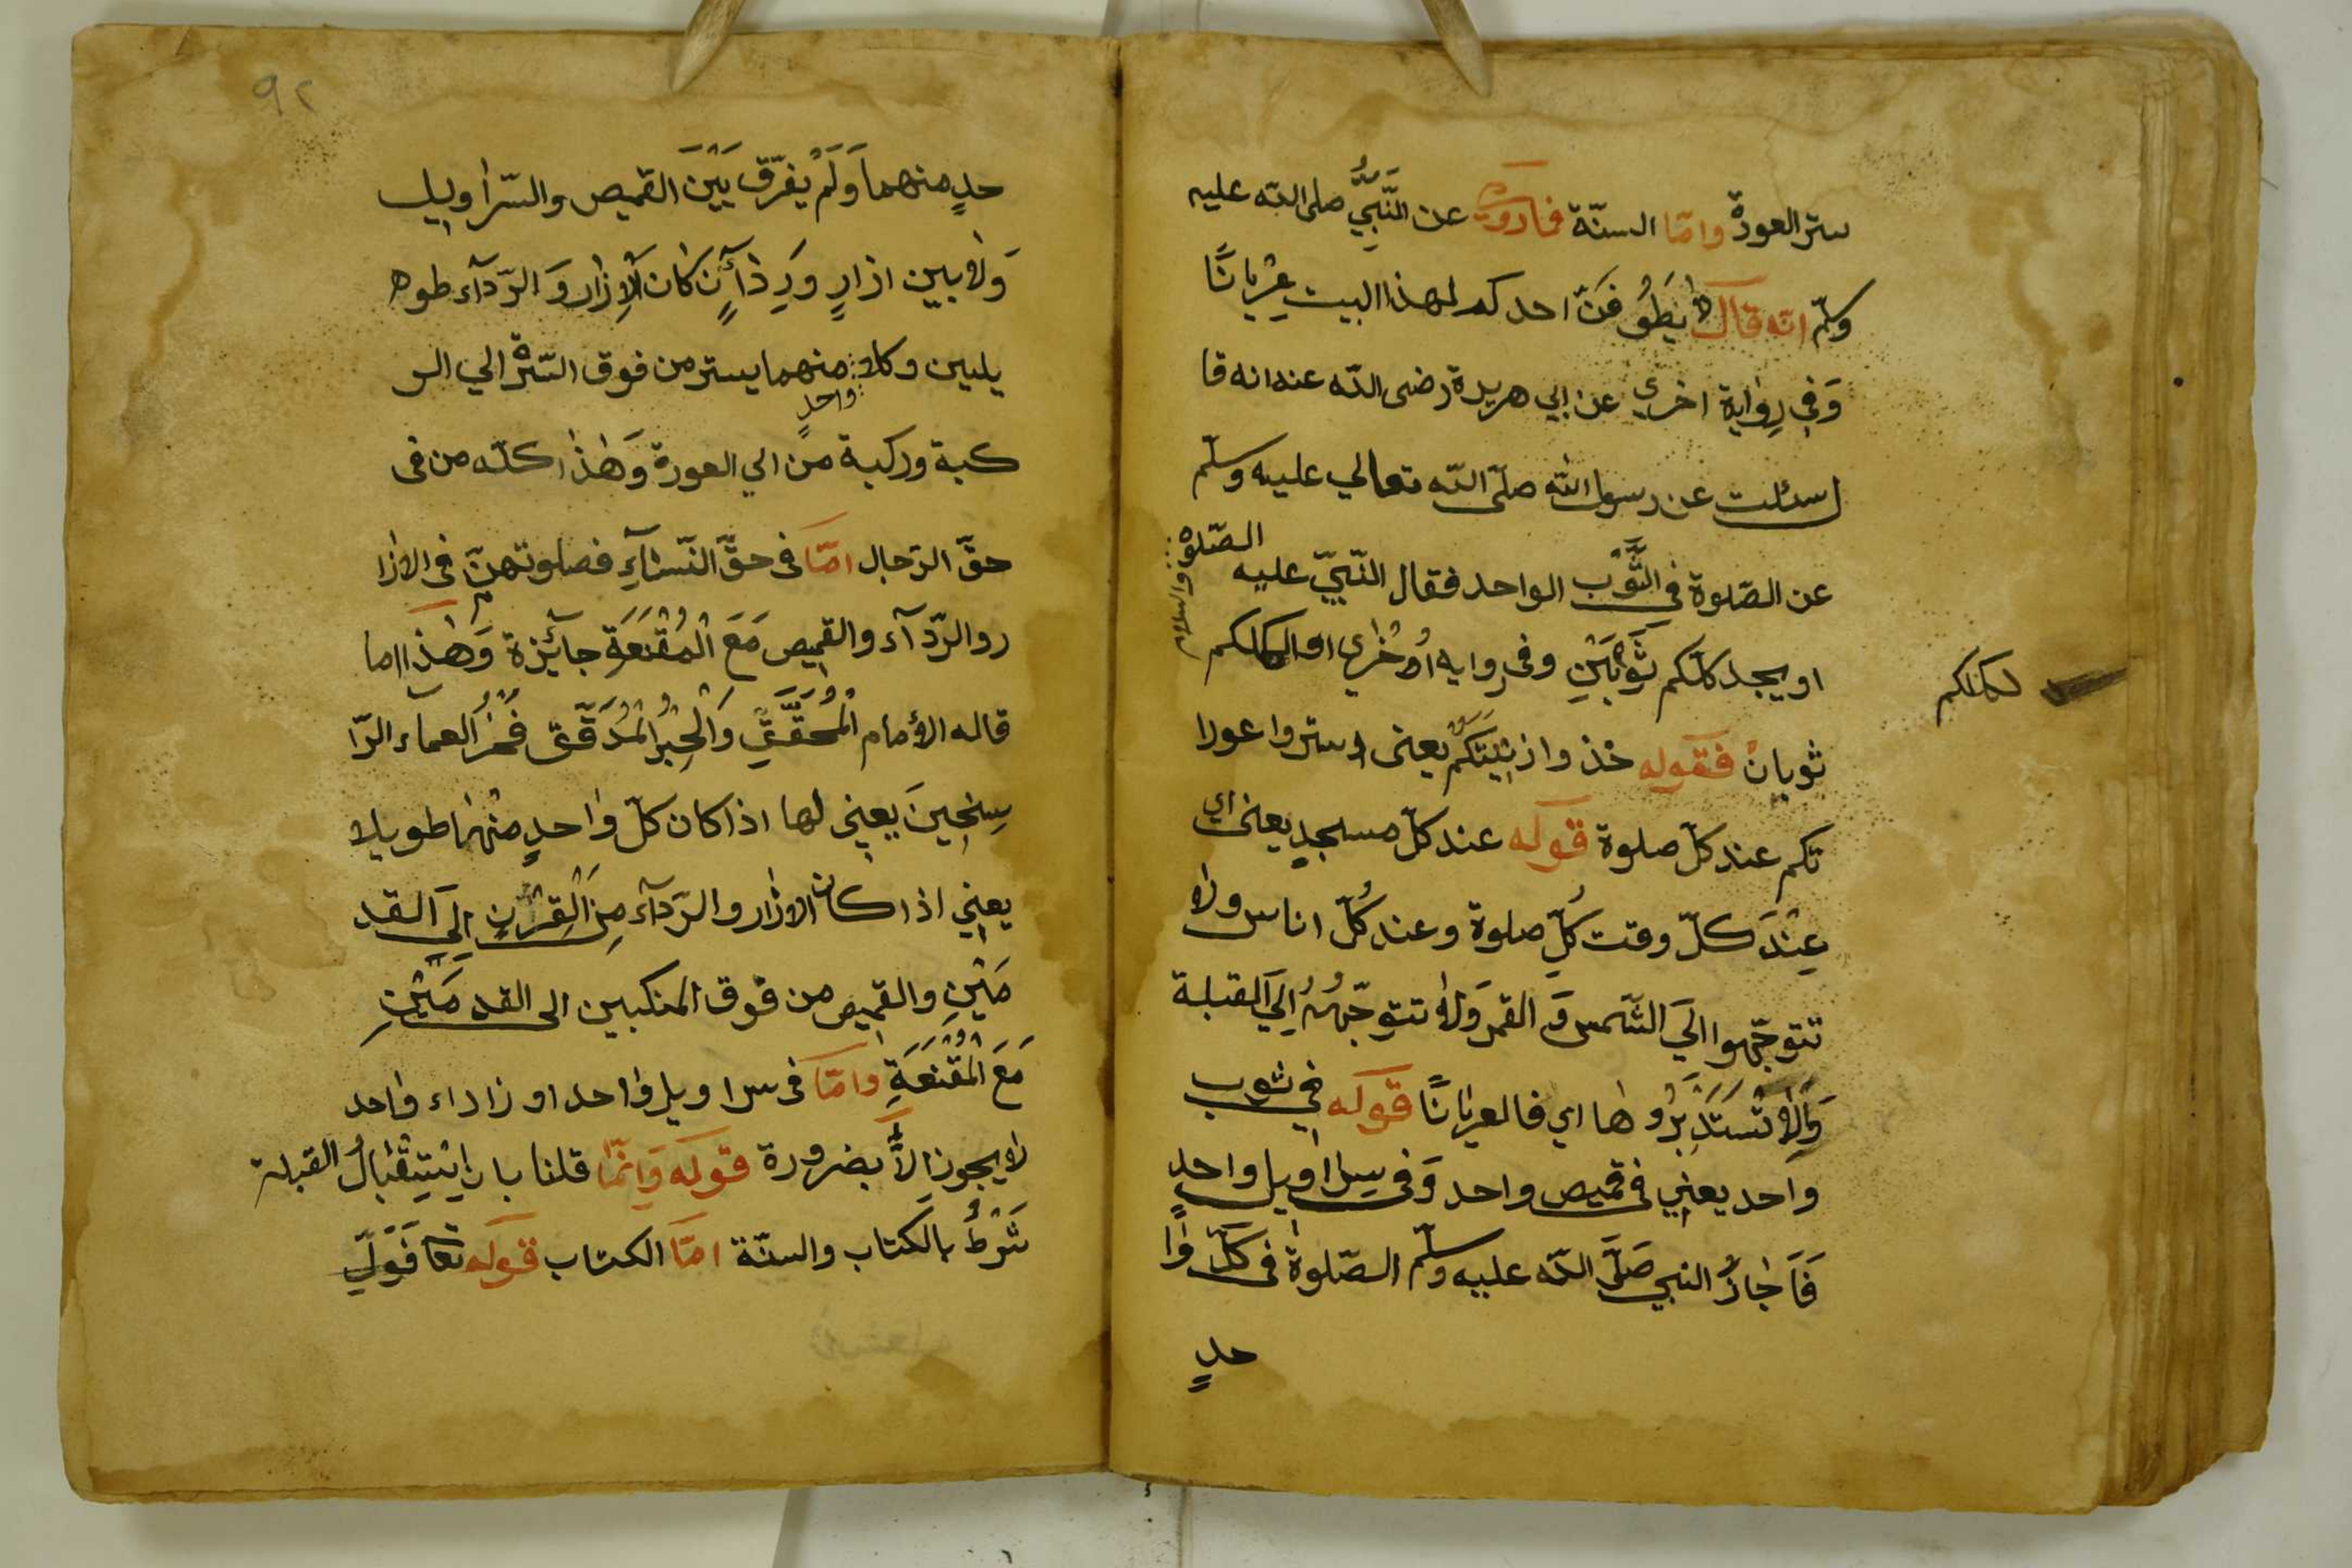 ستر العورة وامّا السنّة فماروي عن النَّبِيُّ صلى الله عليه
وسلّم انه قال لا يَطُوفَنّ احدكم لهذا البيت عِرْيانًا
وَفي رِوٰاية اخري عن ابي هريرة رضى الله عنه انه قا
ل سئلت عن رسول الله صلّى اللّه تعالي عليه وسلّم
عن الصّلوة في الثَّوْب الواحد فقال النّبيّ عليه الصّلوة والسلام
او يجد كلّكم ثَوْبَيْنِ وفى روايه اُخْرٰي او لكلكم
لكلكم
ثوبانْ فقوله خذوا زينَتَكُمْ يعنى استروا عورا
تكم عند كلّ صلوة قوله عند كلّ مسجدٍ يعنى اي
عِنْدَ كلّ وقت كُلِّ صلوة وعند كُلّ اناس ولا
تتوجّهوا اليَ الشّمس وَ القمر وَلا تتوجّهُ اِليَ القبلة
وَلا تَسْتَدْبِرُوهٰا اي فالعريٰانًا قوله في ثوب
واحد يعني فى قميص واحد وَفى سِرٰاويل واحدٍ
فَاَجٰازُ النبي صَلَّى اللّه عليه وسلّم الصّلوةٰ فى كلّ وٰا
حدٍ
٩٢
حدٍ منهما وَلَمْ يفرّق بَيْنَ القميص والسّرٰاويل
وَلا بين ازارٍ وَرِدٰآءٍ كٰان الاِزٰار وَ الرّدَآء طوه
يلين وكلا واحدٍ منهما يستر من فوق السّرّة الي الر
كبة وركبة من الي العورة وَهٰذا كلّه من فى
حقّ الرّجال امّا فى حقّ النّسٰآءِ فصلوتهنّ فى الازا
ر والرّدآء والقميص مَعَ الْمُقْنَعَةِ جآئِزة وَهٰذا اما
قاله الأمام الْمُحَقَّقِ وَالْحِبْرُ الْمُدَقَّق فَخْرُ العمآء الرّا
سِخِينَ يعني لها اذا كان كلّ وٰاحدٍ منهٰما طويلا
يعني اذا كان الازٰار والرّدآء مِنَ الْقِرْنِ اِليَ القد
مَيْنِ والقميص من فوق المنكبين الى القدمَيْنِ
مَعَ الْمُقْنَعَةِ وامّا فى سراويل وٰاحد او ز اداء وٰاحد
لا يجوز الاّ بضرورة قوله وَانّمٰا قلنا بان اِسْتِقْبٰالُ القبلة
شَرْطُ بالكتاب والسنّة امّا الكتاب قوله تعا فَوَلِّ